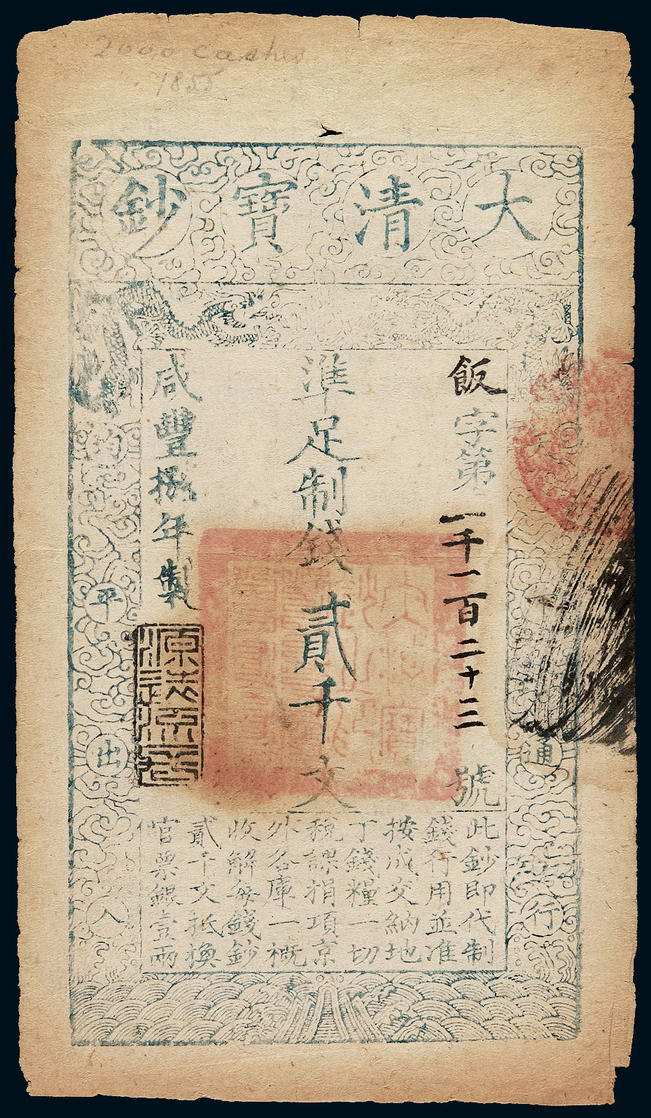 2000 cashes
大清寶鈔
天下通行
飯字第一千一百二十三號
準足制錢貳千文
咸豐捌年製
均平出入
此鈔即代制
錢行用並准
按成交納地
丁錢糧一切
稅課捐項京
外各庫一概
收解每錢鈔
貳千文抵換
官票銀壹兩